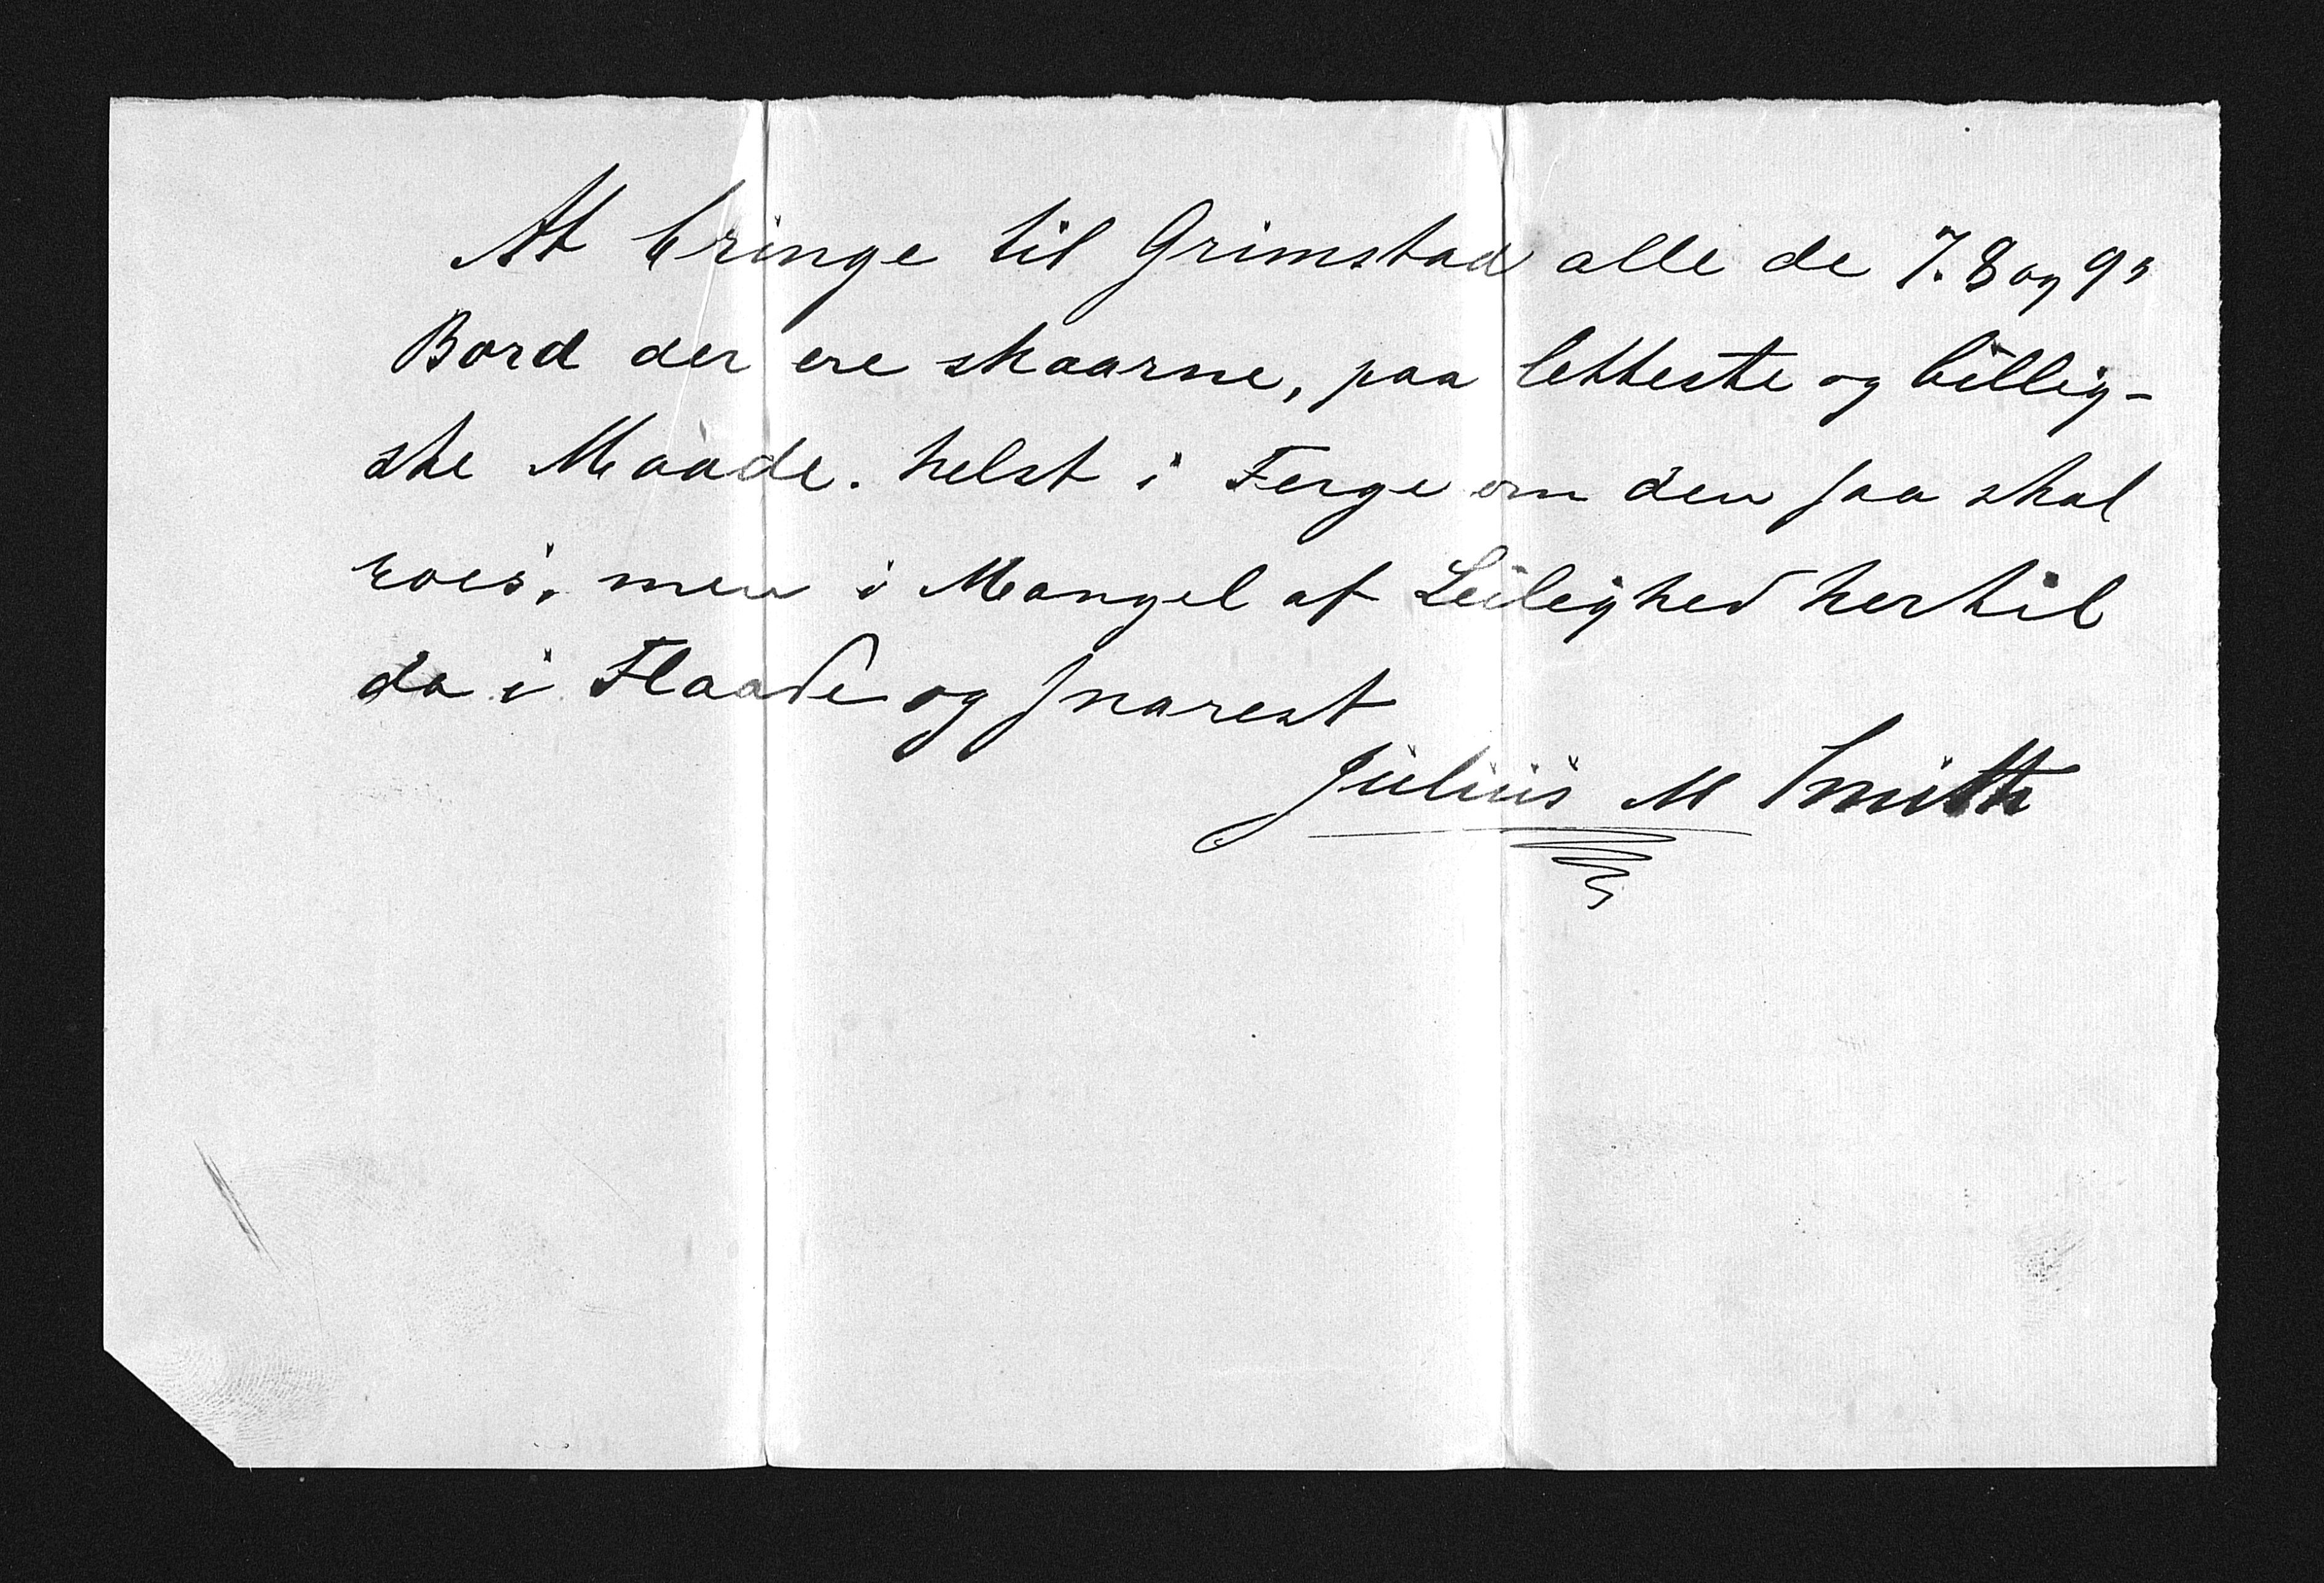 At bringe til Grimstad alle de 7. 8 og 9"
Bord der ere skaarne, paa letteste og billig-
ste Maade. helst i Ferge om den saa skal
roes, men i Mangel af Leilighed hertil
da i Flaade og snarest
Julius M Smith